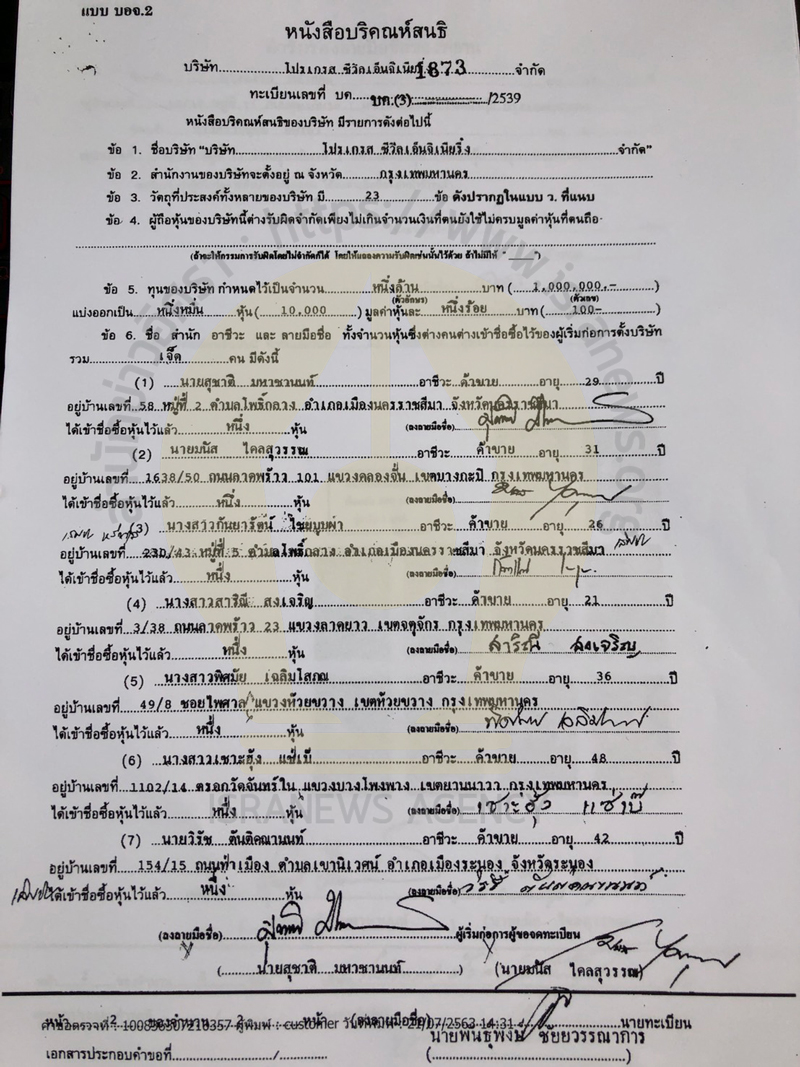 แบบ บอจ.2
หนังสือบริคณห์สนธิ
บริษัท....................โปรเกรส ซีวิลเอ็นจิเนียริ่ง 1873...............จำกัด
ทะเบียนเลขที่ บค.....บค.(3)......................./2539
หนังสือบริคณห์สนธิของบริษัท มีรายการดังต่อไปนี้
ข้อ 1. ชื่อบริษัท "บริษัท..........................โปรเกรส ซีวิลเอ็นจิเนียริ่ง............................................จำกัด"
ข้อ 2. สำนักงานของบริษัทจะตั้งอยู่ ณ จังหวัด...........กรุงเทพมหานคร.......................................................
ข้อ 3. วัตถุที่ประสงค์ทั้งหลายของบริษัท มี............23................ข้อ ดังปรากฏในแบบ ว. ที่แนบ
ข้อ 4. ผู้ถือหุ้นของบริษัทนี้ต่างรับผิดจำกัดเพียงไม่เกินจำนวนเงินที่ตนยังใช้ไม่ครบมูลค่าหุ้นที่ตนถือ
(ถ้าจะให้กรรมการรับผิดโดยไม่จำกัดก็ได้ โดยให้แถลงความรับผิดเช่นนั้นไว้ด้วย ถ้าไม่มีให้ "______")
ข้อ 5. ทุนของบริษัท กำหนดไว้เป็นจำนวน............หนึ่งล้าน................บาท (.....1,000,000.-...........)
(ตัวอักษร) (ตัวเลข)
แบ่งออกเป็น......หนึ่งหมื่น.........หุ้น(......10,000.........) มูลค่าหุ้นละ......หนึ่งร้อย........บาท(..........100-...............)
ข้อ 6. ชื่อ สำนัก อาชีวะ และ ลายมือชื่อ ทั้งจำนวนหุ้นซึ่งต่างคนต่างเข้าชื่อซื้อไว้ของผู้เริ่มก่อการตั้งบริษัท
รวม.................เจ็ด.............คน มีดังนี้
(1) .......นายสุชาติ มหาชานนท์..........................อาชีวะ...ค้าขาย...........อายุ.....29..............ปี
อยู่บ้านเลขที่ 58 หมู่ที่ 2 ตำบลโพธิ์กลาง อำเภอเมืองนครราชสีมา จังหวัดนครราชสีมา
ได้เข้าชื่อซื้อหุ้นไว้แล้ว............หนึ่ง...........หุ้น (ลงลายมือชื่อ)
(2) ....นายมนัส ไคลสุวรรณ...........................อาชีวะ......ค้าขาย.......อายุ......31..............ปี
อยู่บ้านเลขที่...1638/50 ถนนลาดพร้าว 101 แขวงคลองจั่น เขตบางกะปิ กรุงเทพมหานคร
ได้เข้าชื่อซื้อหุ้นไว้แล้ว..........หนึ่ง............หุ้น (ลงลายมือชื่อ)
(3) ...นางสาวกันยารัตน์ ไชยบูบผา..............อาชีวะ.....ค้าขาย........อายุ......26..............ปี
อยู่บ้านเลขที่ 230/43 หมู่ที่ 5 ตำบลโพธิ์กลาง อำเภอเมืองนครราชสีมา จังหวัดนครราชสีมา
ได้เข้าชื่อซื้อหุ้นไว้แล้ว........หนึ่ง.............หุ้น (ลงลายมือชื่อ)
(4) ..นางสาวสาริณี สงเจริญ...........................อาชีวะ...ค้าขาย..........อายุ....21...............ปี
อยู่บ้านเลขที่ 3/38 ถนนลาดพร้าว 23 แขวงลาดยาว เขตจตุจักร กรุงเทพมหานคร
ได้เข้าชื่อซื้อหุ้นไว้แล้ว...........หนึ่ง..........หุ้น (ลงลายมือชื่อ) สาริณี สงเจริญ
(5) ..นางสาวพิศมัย เฉลิมโสภณ........................อาชีวะ....ค้าขาย.........อายุ......36.............ปี
อยู่บ้านเลขที่ 49/8 ซอยไพศาล แขวงห้วยขวาง เขตห้วยขวาง กรุงเทพมหานคร
ได้เข้าชื่อซื้อหุ้นไว้แล้ว......หนึ่ง................หุ้น (ลงลายมือชื่อ)
(6) ..นางสาวเซาะฮุ้ง แซ่เบ๊.............................อาชีวะ....ค้าขาย.........อายุ....48...............ปี
อยู่บ้านเลขที่..1102/14 ตรอกวัดจันทร์ใน แขวงบางโพงพาง เขตยานนาวา กรุงเทพมหานคร
ได้เข้าชื่อซื้อหุ้นไว้แล้ว.........หนึ่ง............หุ้น (ลงลายมือชื่อ) เซาะฮุ้ง แซ่เบ๊
(7) ...นายวิรัช ตันติคณานนท์........................อาชีวะ....ค้าขาย.......อายุ.....42...............ปี
อยู่บ้านเลขที่ 154/15 ถนนท่าเมือง ตำบลเขานิเวศน์ อำเภอเมืองระนอง จังหวัดระนอง
ได้เข้าชื่อซื้อหุ้นไว้แล้ว......หนึ่ง...............หุ้น (ลงลายมือชื่อ)
(ลงลายมือชื่อ)........................................ผู้เริ่มก่อการผู้ขอจดทะเบียน
(.......นายสุชาติ มหาชานนท์.............) (นายมนัส ไคลสุวรรณ)
หน้า 2 ของจำนวน 2 หน้า (ลงลายมือชื่อ)........................นายทะเบียน
ผู้พิมพ์ : customer 14:31
นายพันธุ์พงษ์ ชัยวรรณาการ
เอกสารประกอบคำขอที่........................../............. (...........................................)
ISRANEWS AGENCY